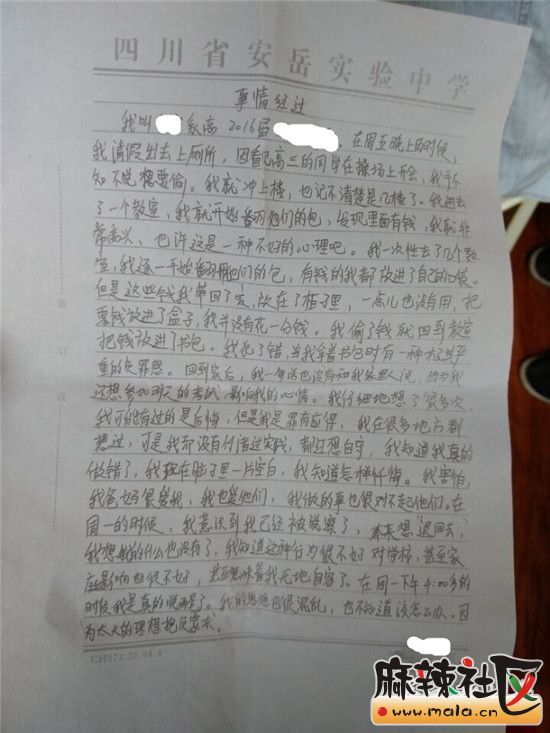 四川省安岳实验中学
事情经过
我叫 系高2016届 。在周五晚上的时候,
我请假出去上厕所,因看已高三的同学在操场上开会,我
知不觉想要偷。我就冲上楼,也记不清楚是几楼了。我进去
了一个教室,我就开始翻他们的包,发现里面有钱,我就非
常高兴、也许这是一种不好的心理吧。我一次性去了几个教
室,我逐一开始翻他们的包,有钱的我都放进了自己的口袋。
但是这些钱我带回了家,放在了柜子里,一点儿也没有用,把
钱放进了盒子,我并没有花一分钱。我偷了钱就回到教室
把钱放进了书包。我犯了错,当我拿着书包时有一种
重的负罪感。回到家后,我一句话也没有和我家里人说,因为我
还想参加明天的考试,影响我的心情。我仔细地想了很多次,
我可能有过的是后悔,但是我是罪有应得,我在很多地方都
想过,可是我却没有付诸过实践,都过想自守,我知道我真的
做错了,我现在脑子里一片空白,我知道怎样忏悔。我害怕,
我爸妈很爱我,我也爱他们,我做的事也很对不起他们。在
周一的时候,我意识到我已经被觉察了,本来想退回去,
我想我的什么也没有了,我知道这种行为很不好对学校,甚至家
庭影响也很不好,甚至意味着我无地自容了。在周一下午4:00多的
时候我是真的 了。我的思想也很混乱,也不知道该怎么办。因
为太大的理想抱负
CH072.20.08.6
麻辣社区
www.mala.cn